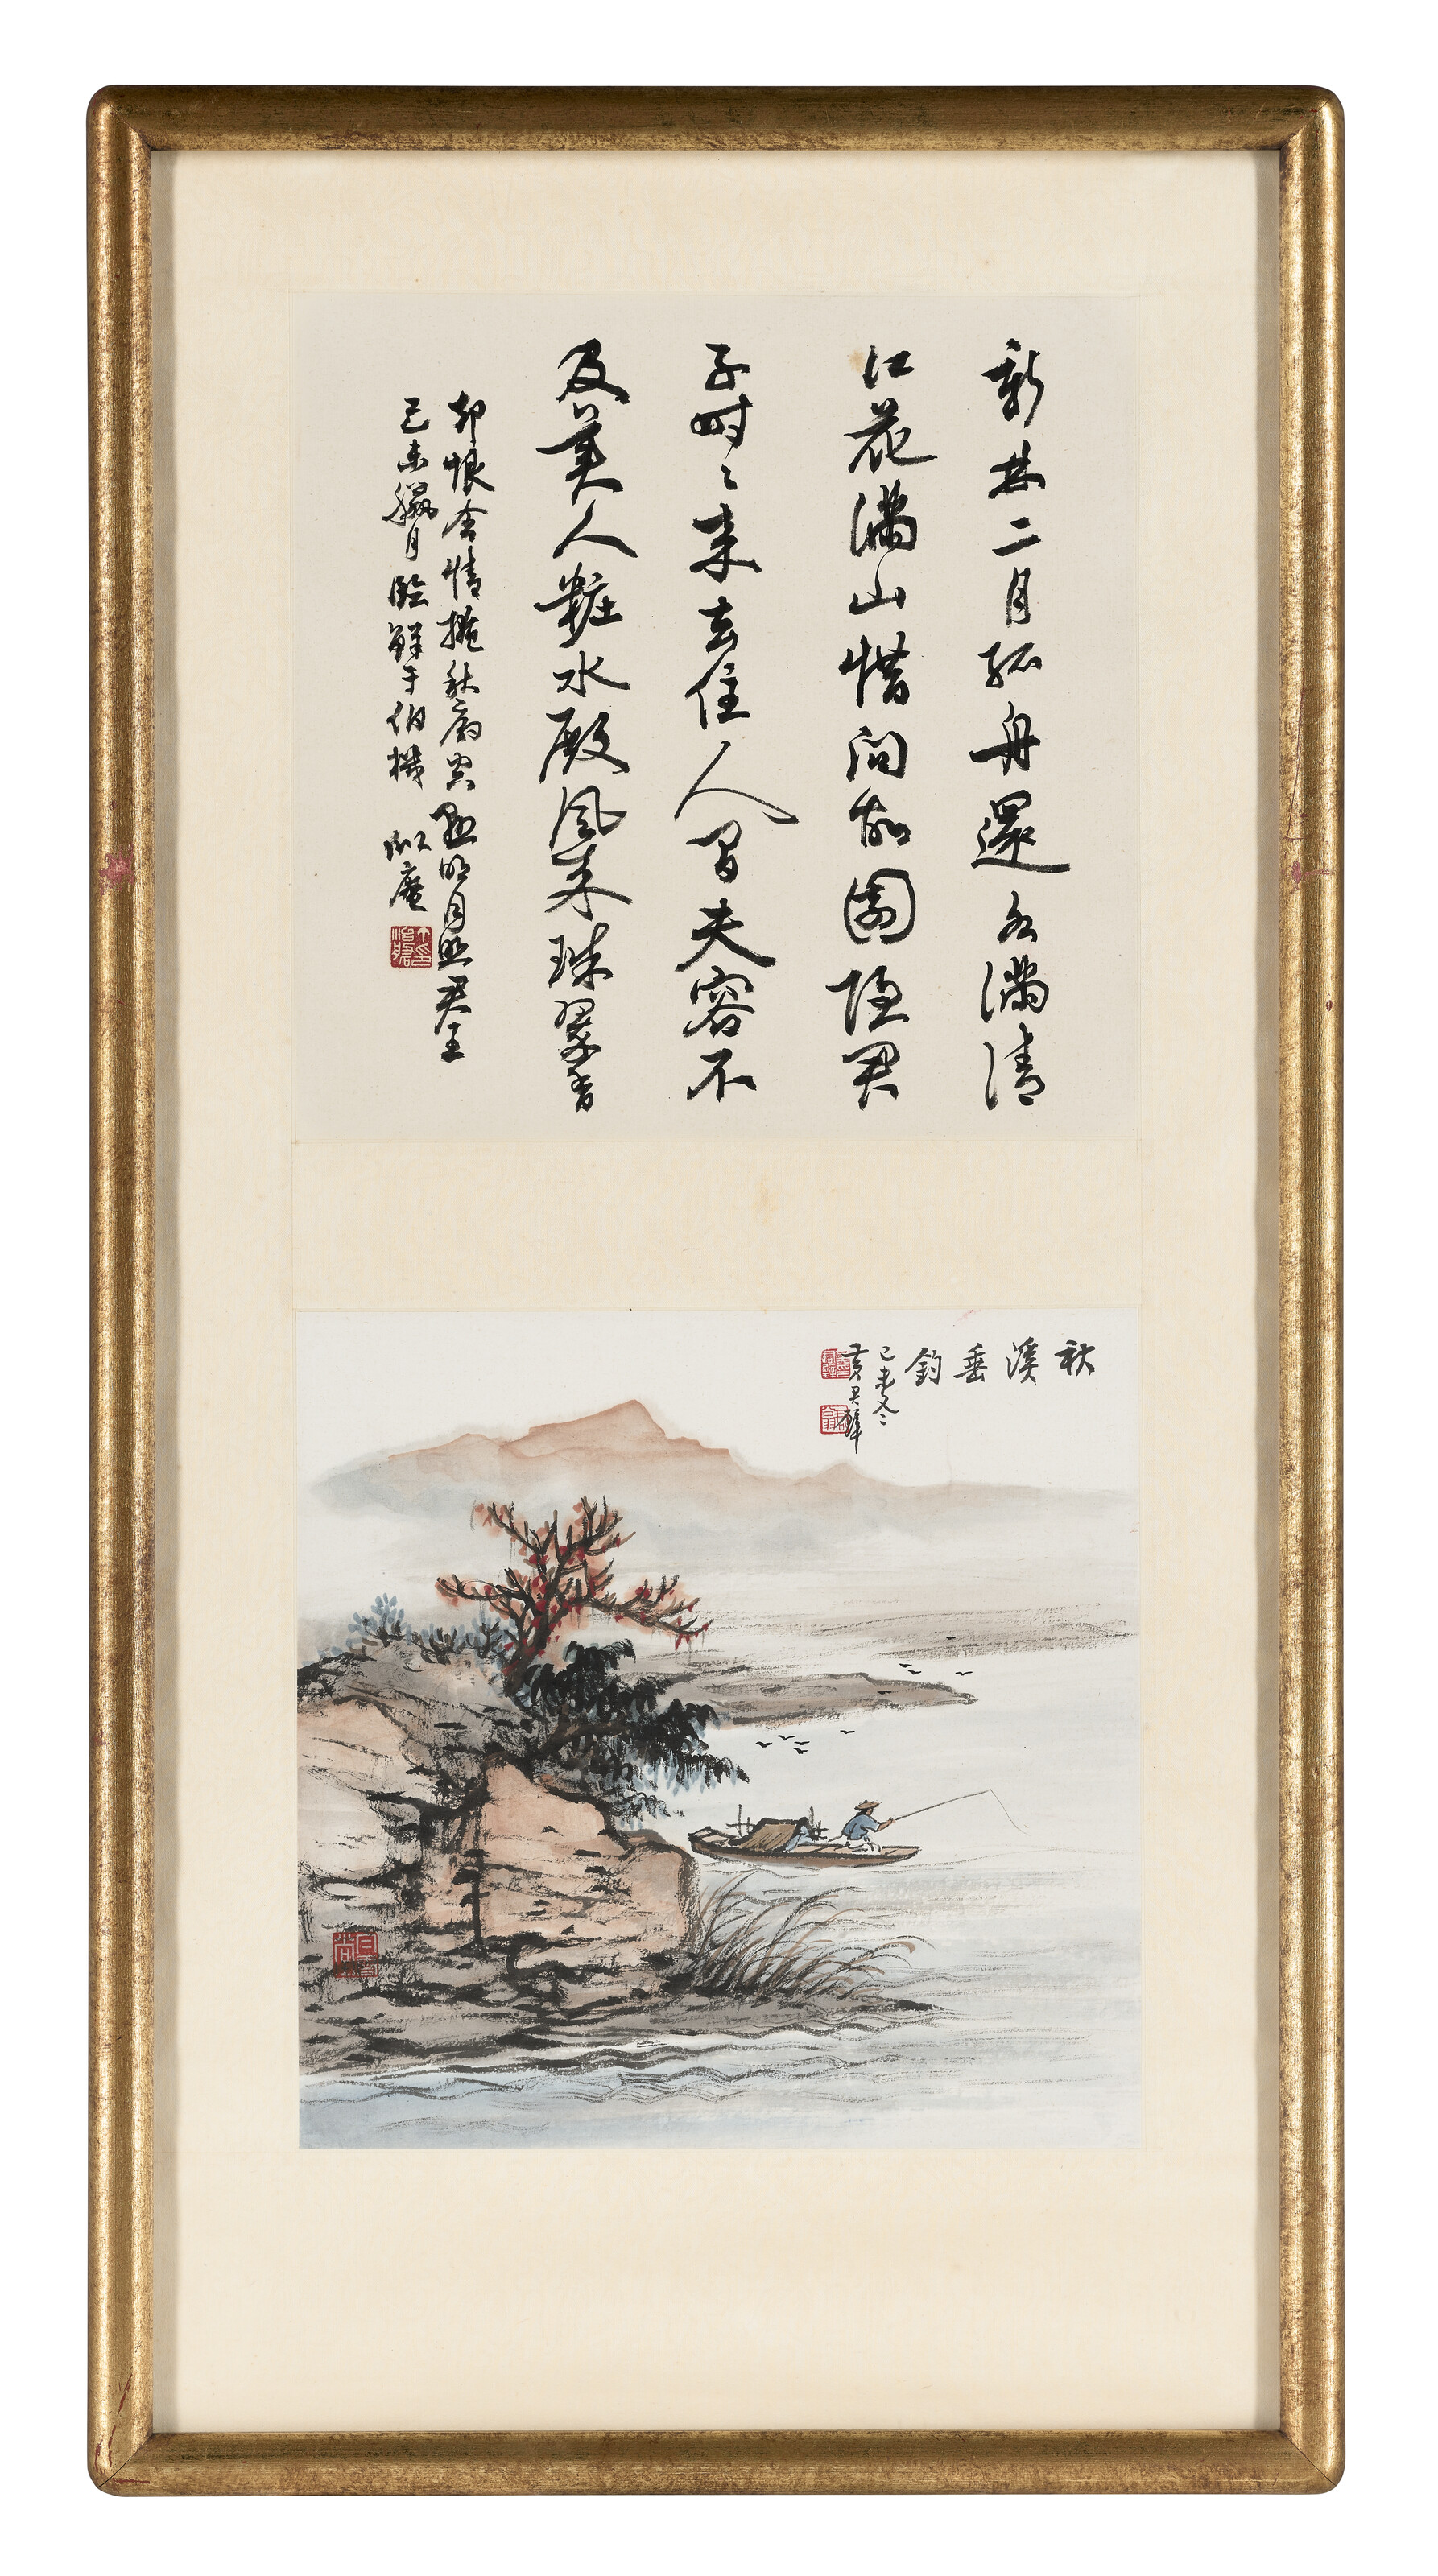 新林二月孤舟還水滿清
江花滿山借問故園隱君
子時々來去住人間芙容不
及美人粧水殿風來珠翠香
却恨含情掩秋扇空懸明月照君王
己未臘月臨鮮于伯機
秋溪垂釣
己未冬
黃君璧